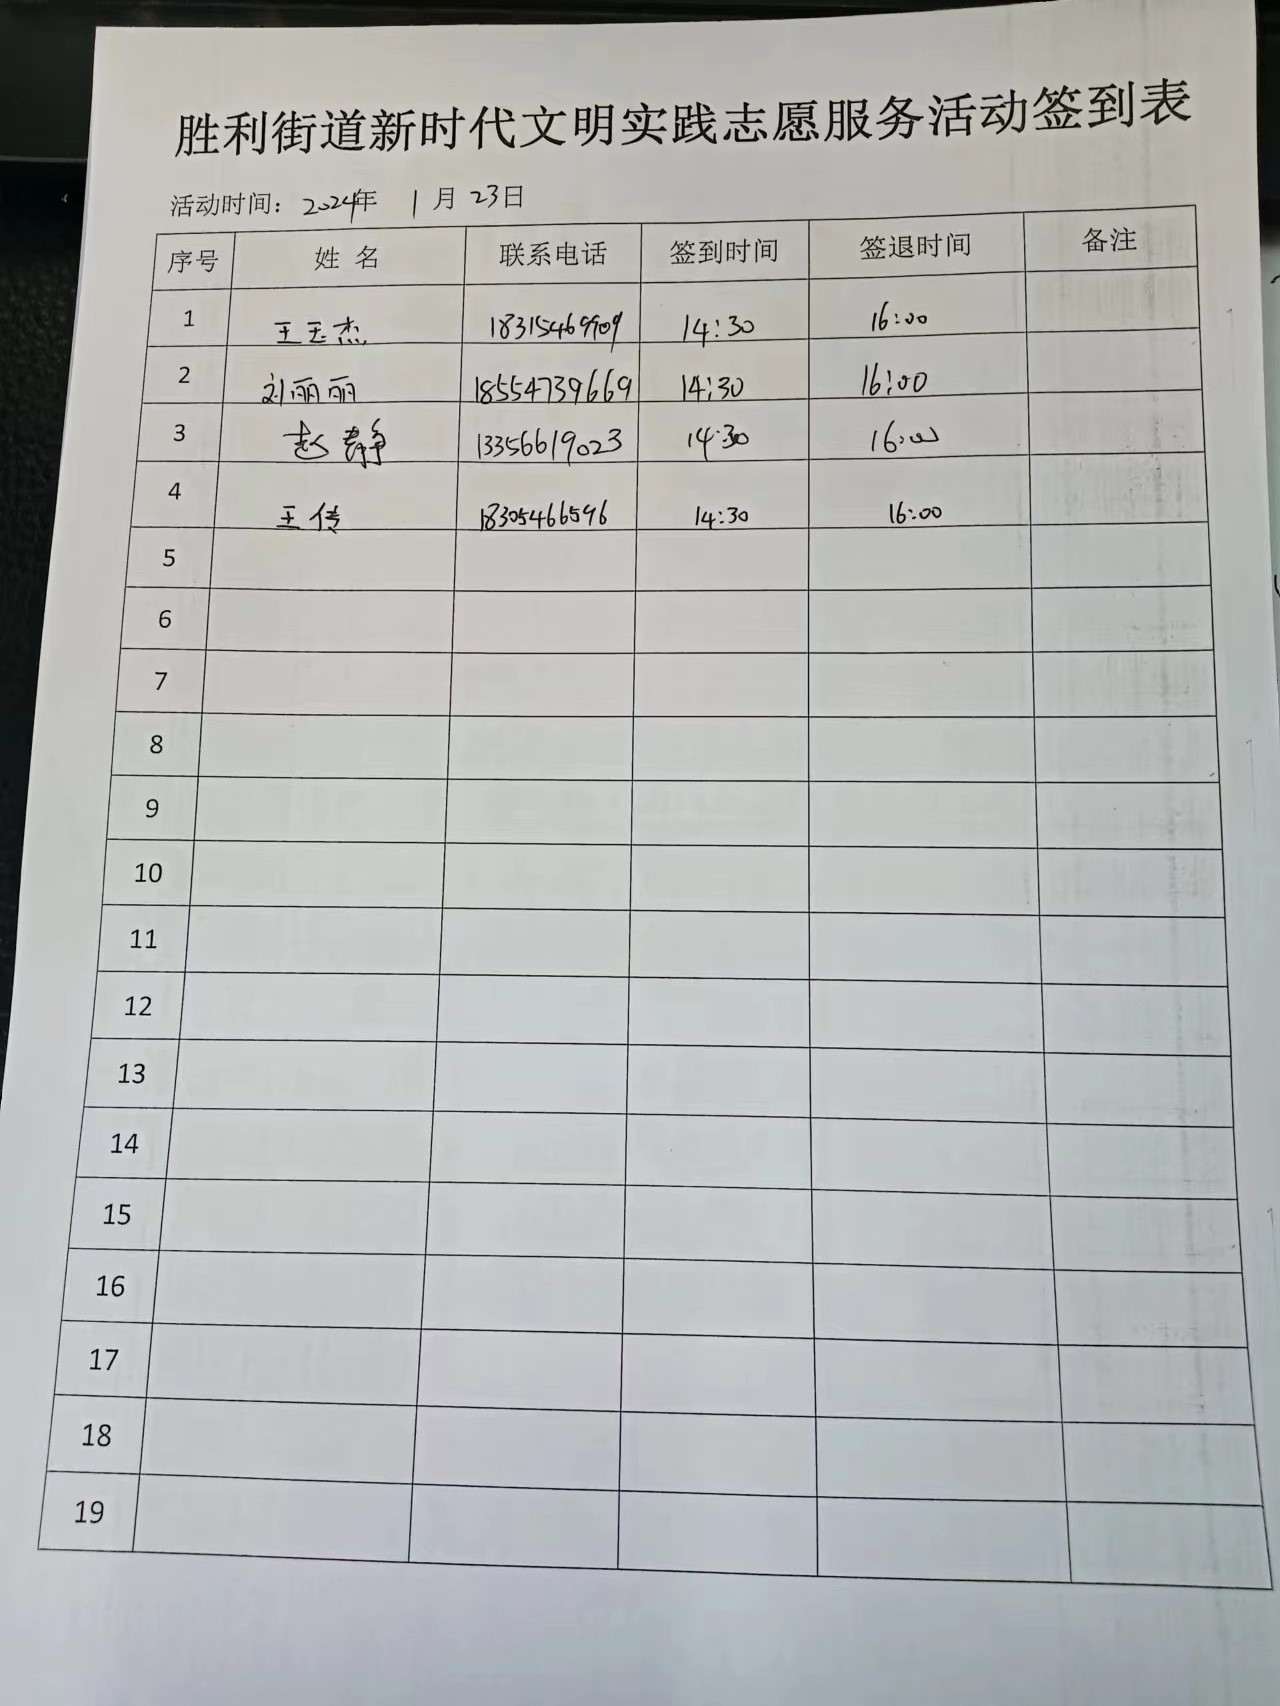 胜利街道新时代文明实践志愿服务活动签到表
活动时间：2024年 1月 23日
序号 姓 名 联系电话 签到时间 签退时间 备注
1 王玉杰 18315469909 14:30 16:00
2 刘丽丽 18554739669 14:30 16:00
3 赵静 13356619023 14:30 16:00
4 王传 18305466596 14:30 16:00
5
6
7
8
9
10
11
12
13
14
15
16
17
18
19